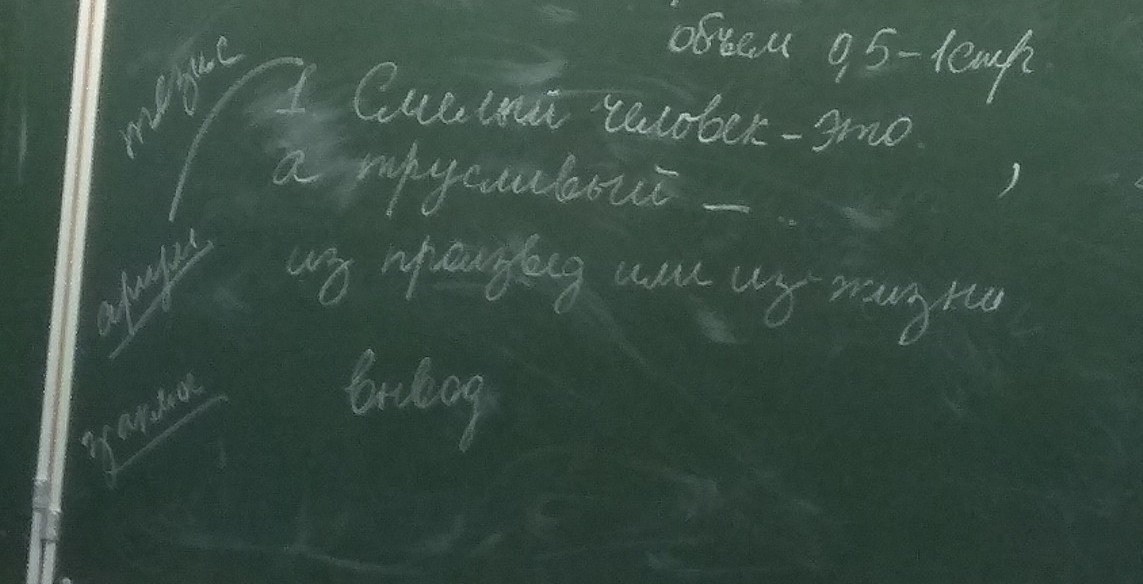 объем 0,5-1стр
тезис
1 Смелый человек - это.
а трусливый - ..
аргум
из произвед или из жизни
заключ
вывод